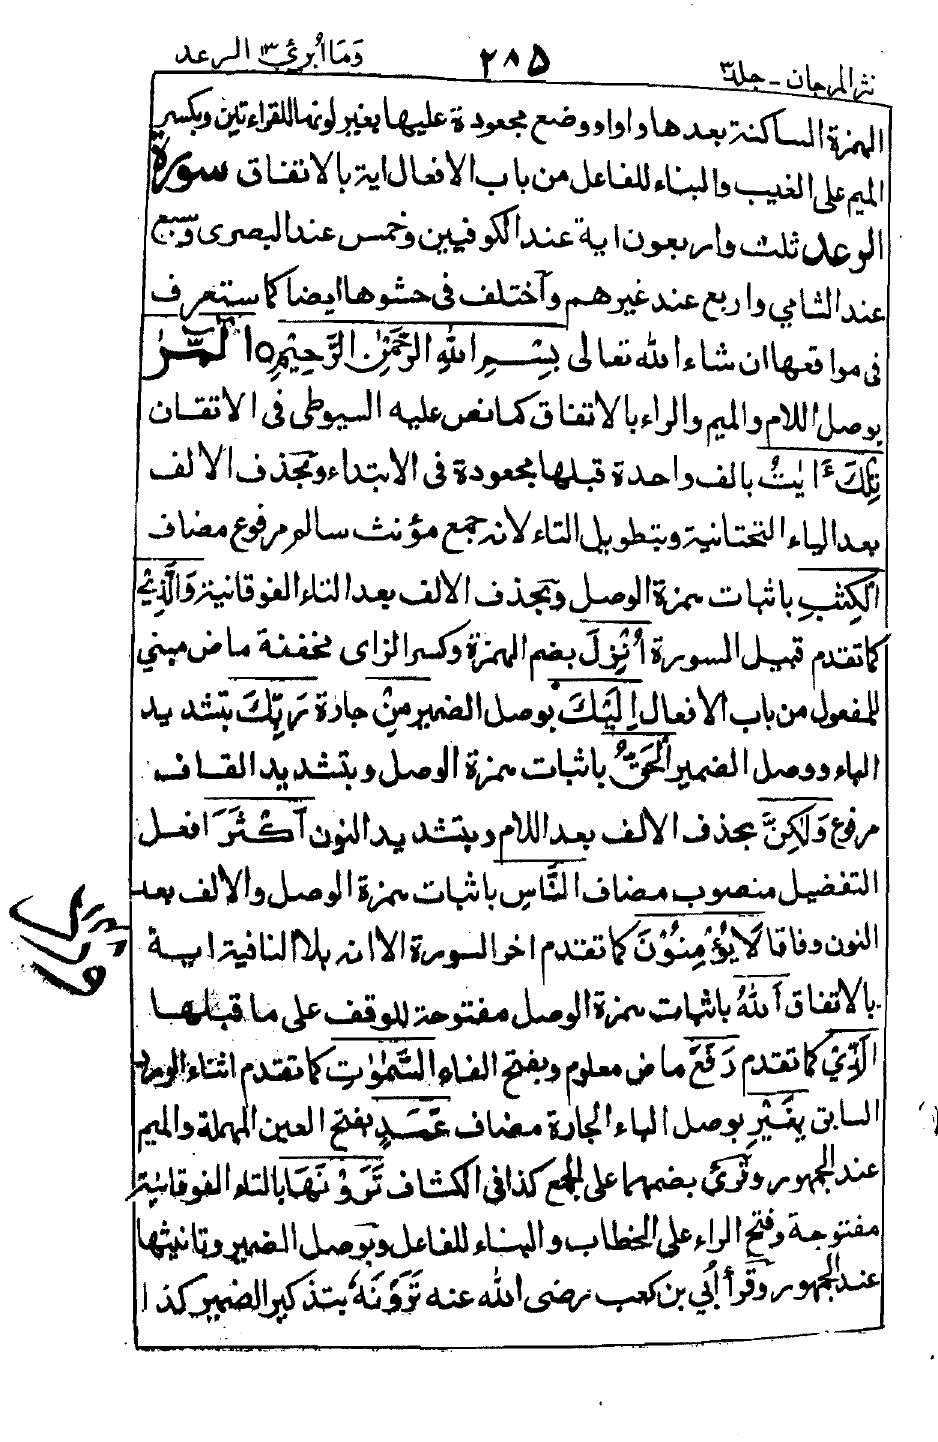 نثر المرجان - جلد ٣ ٢٨٥ وَمَا أُبَرِّئُ ١٣ الرعد
الهمزة الساكنة بعدها واوا ووضع مجعودة عليها بغير لونها للقراءتين وبكسر
الميم على الغيب والبناء للفاعل من باب الافعال اية بالاتفاق سورة
الرعد ثلث واربعون اية عند الكوفيين وخمس عند البصرى وسبع
عند الشامي واربع عند غيرهم وآختلف فى حشوها ايضا كما ستعرف
فى مواقعها ان شاء الله تعالى بِسْمِ اللهِ الرَّحْمٰنِ الرَّحِيْمِ ٥ الٓمّٓرٰ
بوصل اللام والميم والراء بالاتفاق كما نص عليه السيوطى فى الاتقان
تِلْكَ ءَايٰتُ بالف واحدة قبلها مجعودة فى الابتداء وبحذف الالف
بعد الياء التحتانية وبتطويل التاء لانه جمع مؤنث سالم مرفوع مضاف
الْكِتٰبِ باثبات همزة الوصل وبحذف الالف بعد التاء الفوقانية وَالَّذِيْ
كما تقدم قبيل السورة أُنْزِلَ بضم الهمزة وكسر الزاى مخففة ماض مبني
للمفعول من باب الافعال اِلَيْكَ بوصل الضمير مِنْ جارة رَبِّكَ بتشديد
الباء ووصل الضمير الْحَقُّ باثبات همزة الوصل وبتشديد القاف
مرفوع وَلٰكِنَّ بحذف الالف بعد اللام وبتشديد النون اَكْثَرَ افعل
التفضيل منصوب مضاف النَّاسِ باثبات همزة الوصل والالف بعد
النون وفاقا لَا يُؤْمِنُوْنَ كما تقدم اخر السورة الا انه بلا النافية اية
بالاتفاق اَللهُ باثبات همزة الوصل مفتوحة للوقف على ما قبلها
الَّذِيْ كما تقدم رَفَعَ ماض معلوم وبفتح الفاء السَّمٰوٰتِ كما تقدم اثناء الورد
السابق بِغَيْرِ بوصل الباء الجارة مضاف عَمَدٍ بفتح العين المهملة والميم
عند الجمهور وقرئ بضمهما على الجمع كذا فى الكشاف تَرَوْنَهَا بالتاء الفوقانية
مفتوحة وفتح الراء على الخطاب والبناء للفاعل وبوصل الضمير وتانيثها
عند الجمهور وقرأ أُبي بن كعب رضى الله عنه تَرَوْنَهٗ بتذكير الضمير كذا